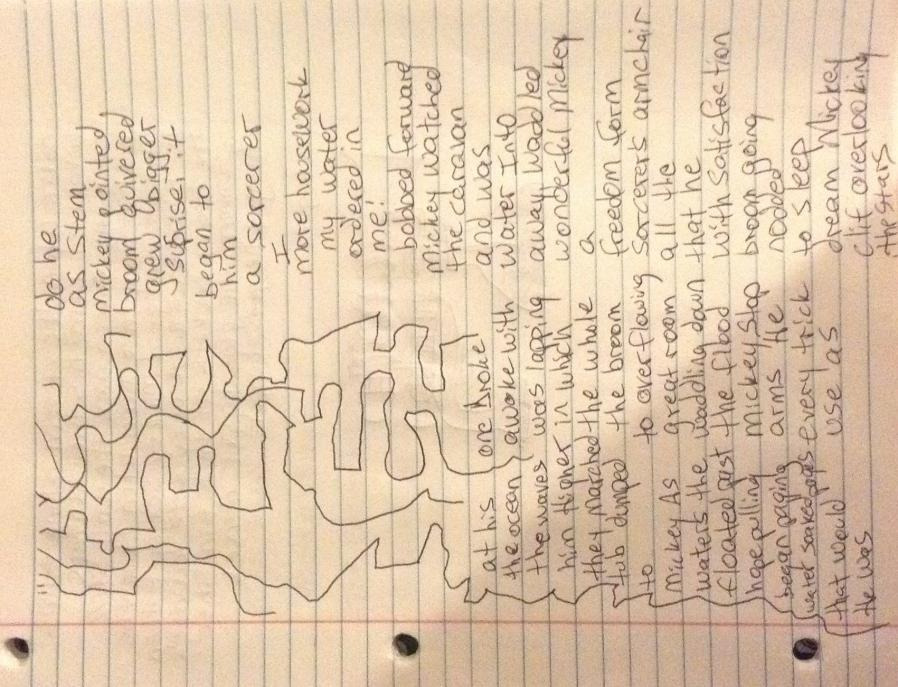 do he
as stem
mickey pointed
broom quivered
grew bigger
suprise, it
began to
him
a sorcerer
I
more housework
my water
ordered in
me!
bobbed forward
mickey watched
the caravan
at his orc broke and was
the ocean awoke with water Into
the waves was lapping away waddled
him Higher in which wonderful mickey
they marched the whole a
tub dumped the broom freedom form
to to overflowing sorcerers armchair
mickey As great room all the
waters the waddling down that he
floated past the flood with satisfaction
hope pulling mickey stop broom going
began paging arms He nodded
water soaked pages every trick to sleep
that would use as dream Mickey
He was clif overlooking
the stars